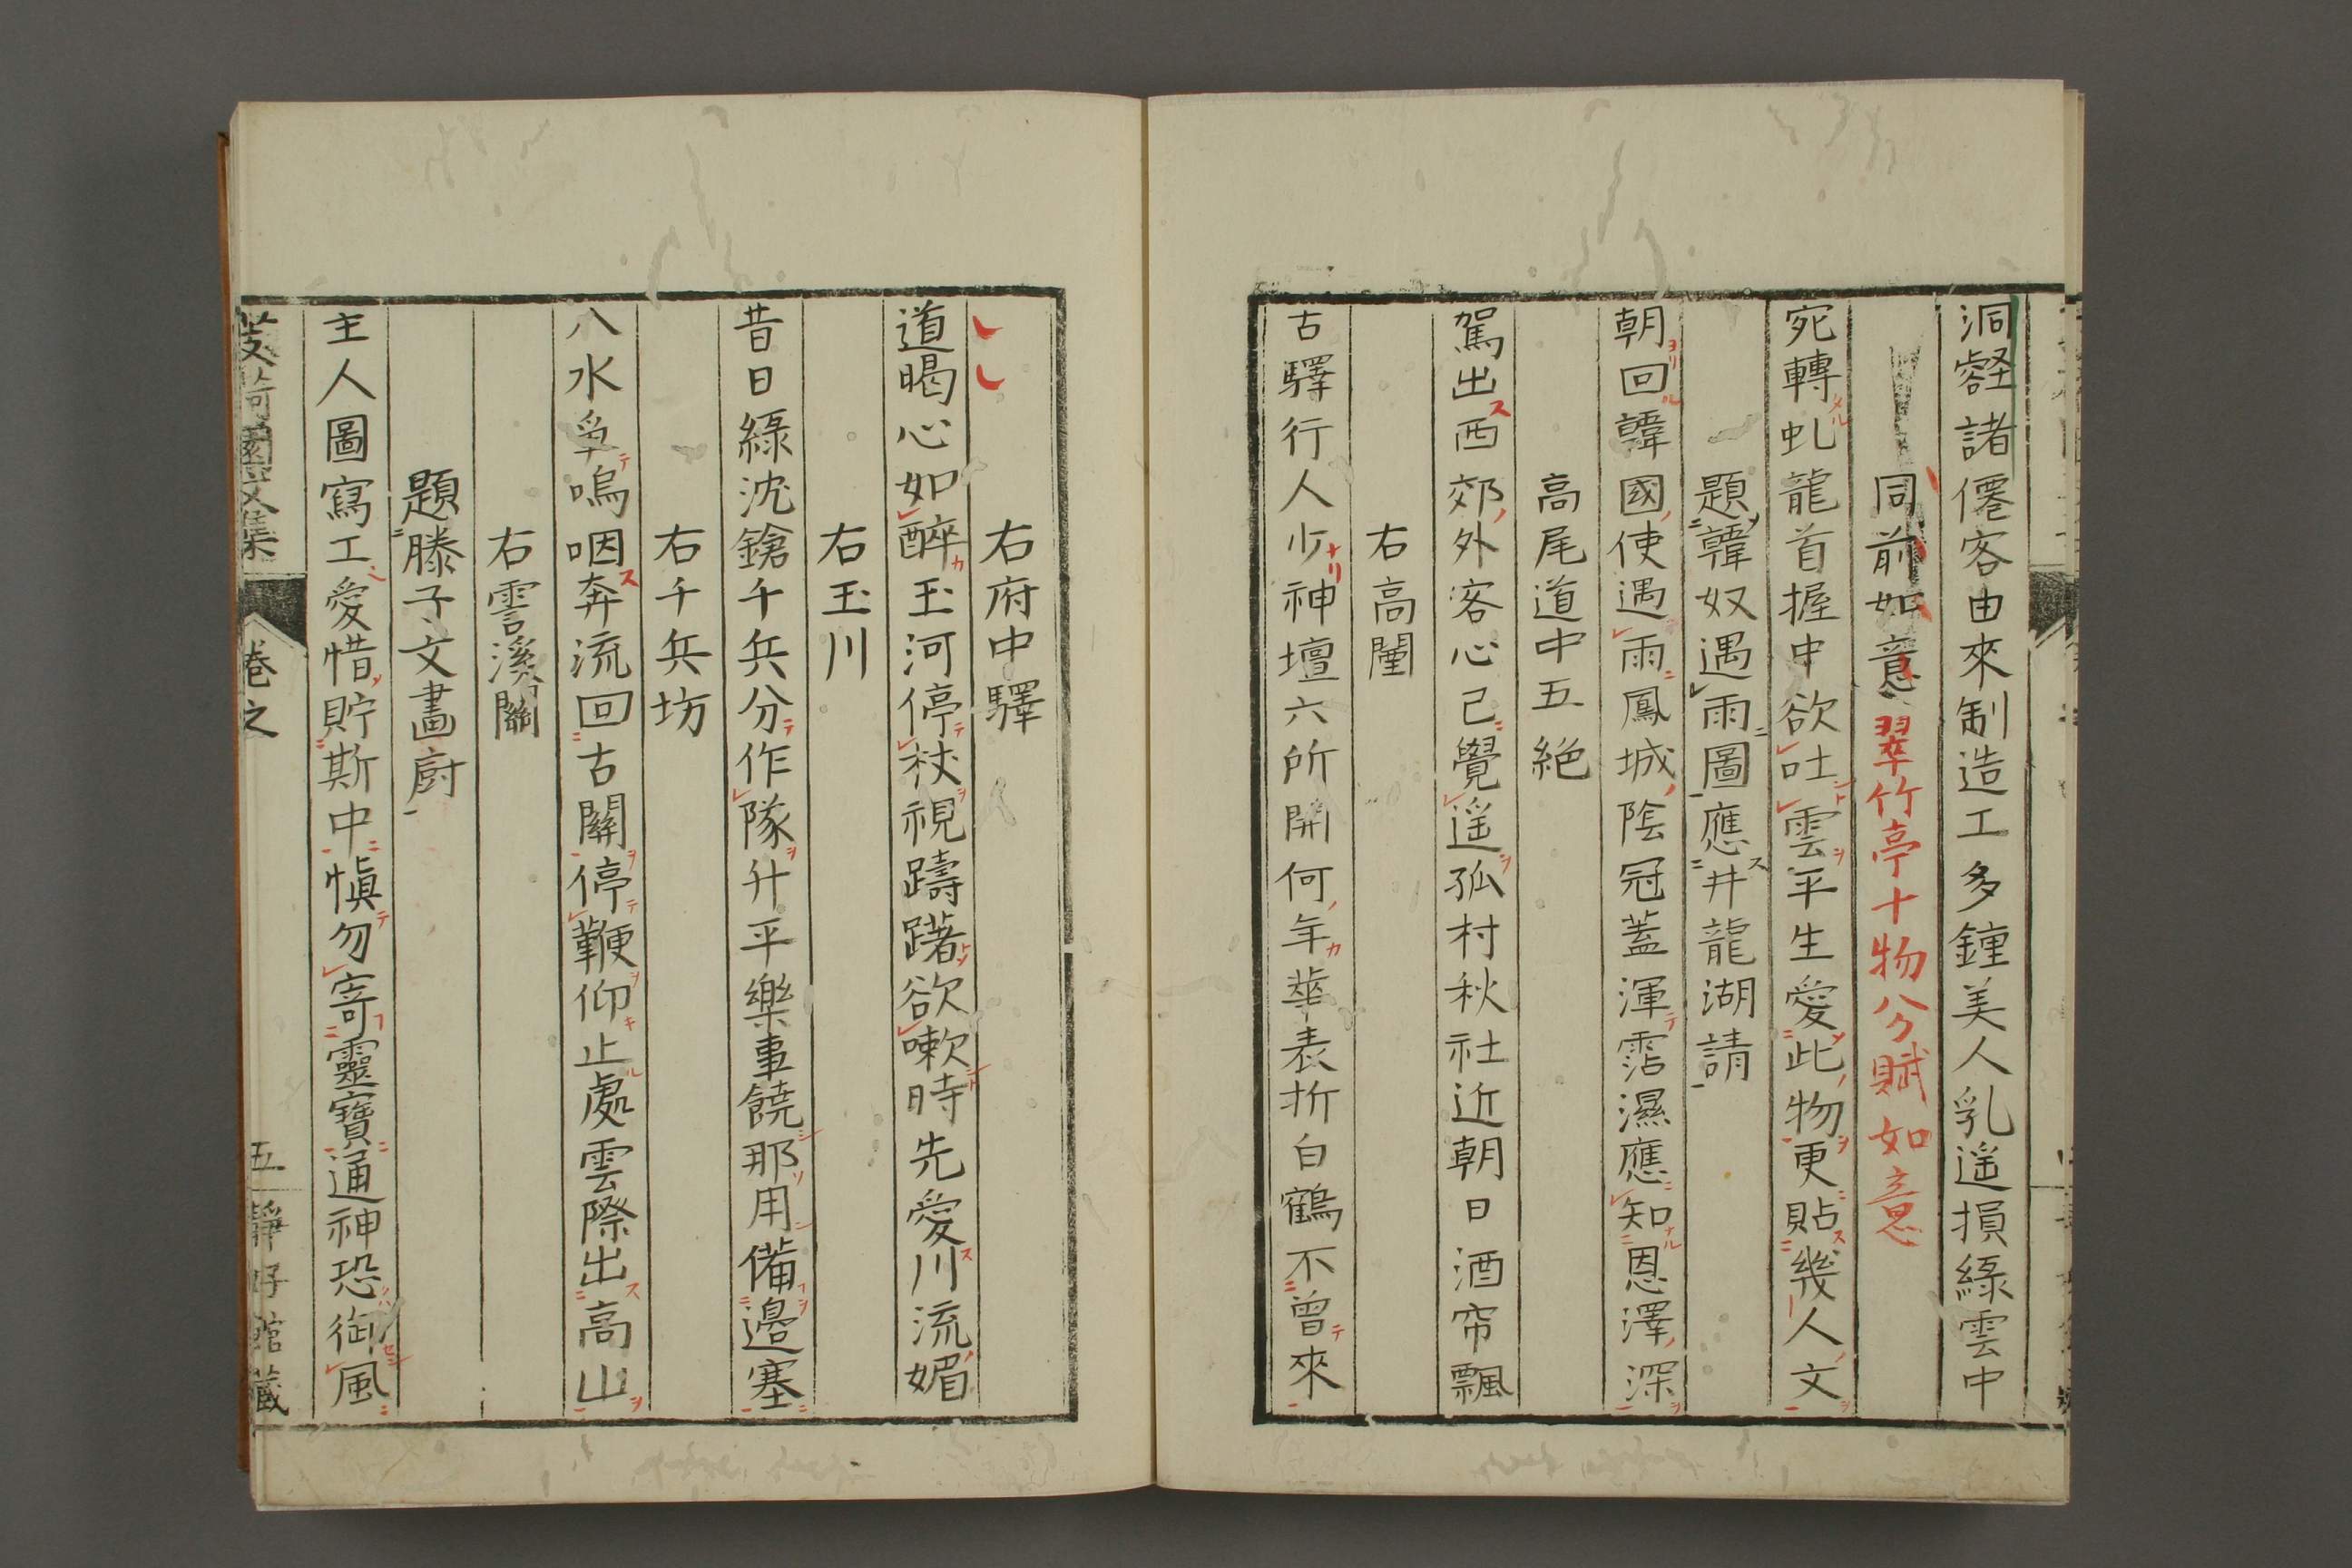 洞壑諸僊客由來制造工多鍾美人乳遥損緑雲中
同前如意翠竹亭十物分賦如意
宛轉虬龍首握中欲吐雲平生愛此物更貼幾人文
題韓奴遇雨圖應井龍湖請
朝回韓國使遇雨鳳城陰冠蓋渾霑濕應知恩澤深
高尾道中五絶
駕出西郊外客心已覺遥孤村秋社近朝日酒帘飄
右高閨
古驛行人少神壇六所開何年華表折白鶴不曾來
右府中驛
道暍心如醉玉河停杖視躊躇欲嗽時先愛川流媚
右玉川
昔日緑沈鎗千兵分作隊升平樂事饒那用備邊塞
右千兵坊
八水爭鳴咽奔流回古關停鞭仰止處雲際出高山
右雲溪關
題滕子文畫廚
主人圖寫工愛惜貯斯中愼勿寄靈寶通神恐御風
芰荷園文集
卷之
五
靜好館藏